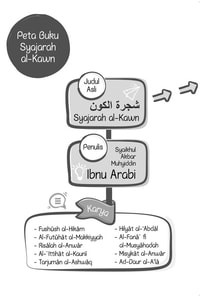 Peta Buku
Syajarah
al-Kawn
Judul
Asli
شجرة الكون
Syajarah al-Kawn
Penulis
Syaikhul
Akbar
Muhyiddin
Ibnu Arabi
Karya
- Fushûsh al-Hikâm
- Al-Futûhât al-Makkiyyah
- Risâlah al-Anwâr
- Al-'Ittihât al-Kaunî
- Tarjumân al-Ashwâq
- Hilyât al-'Abdâl
- Al-Fanâ' fî
al-Musyâhadah
- Misykât al-Anwâr
- Ad-Daur al-A'lâ